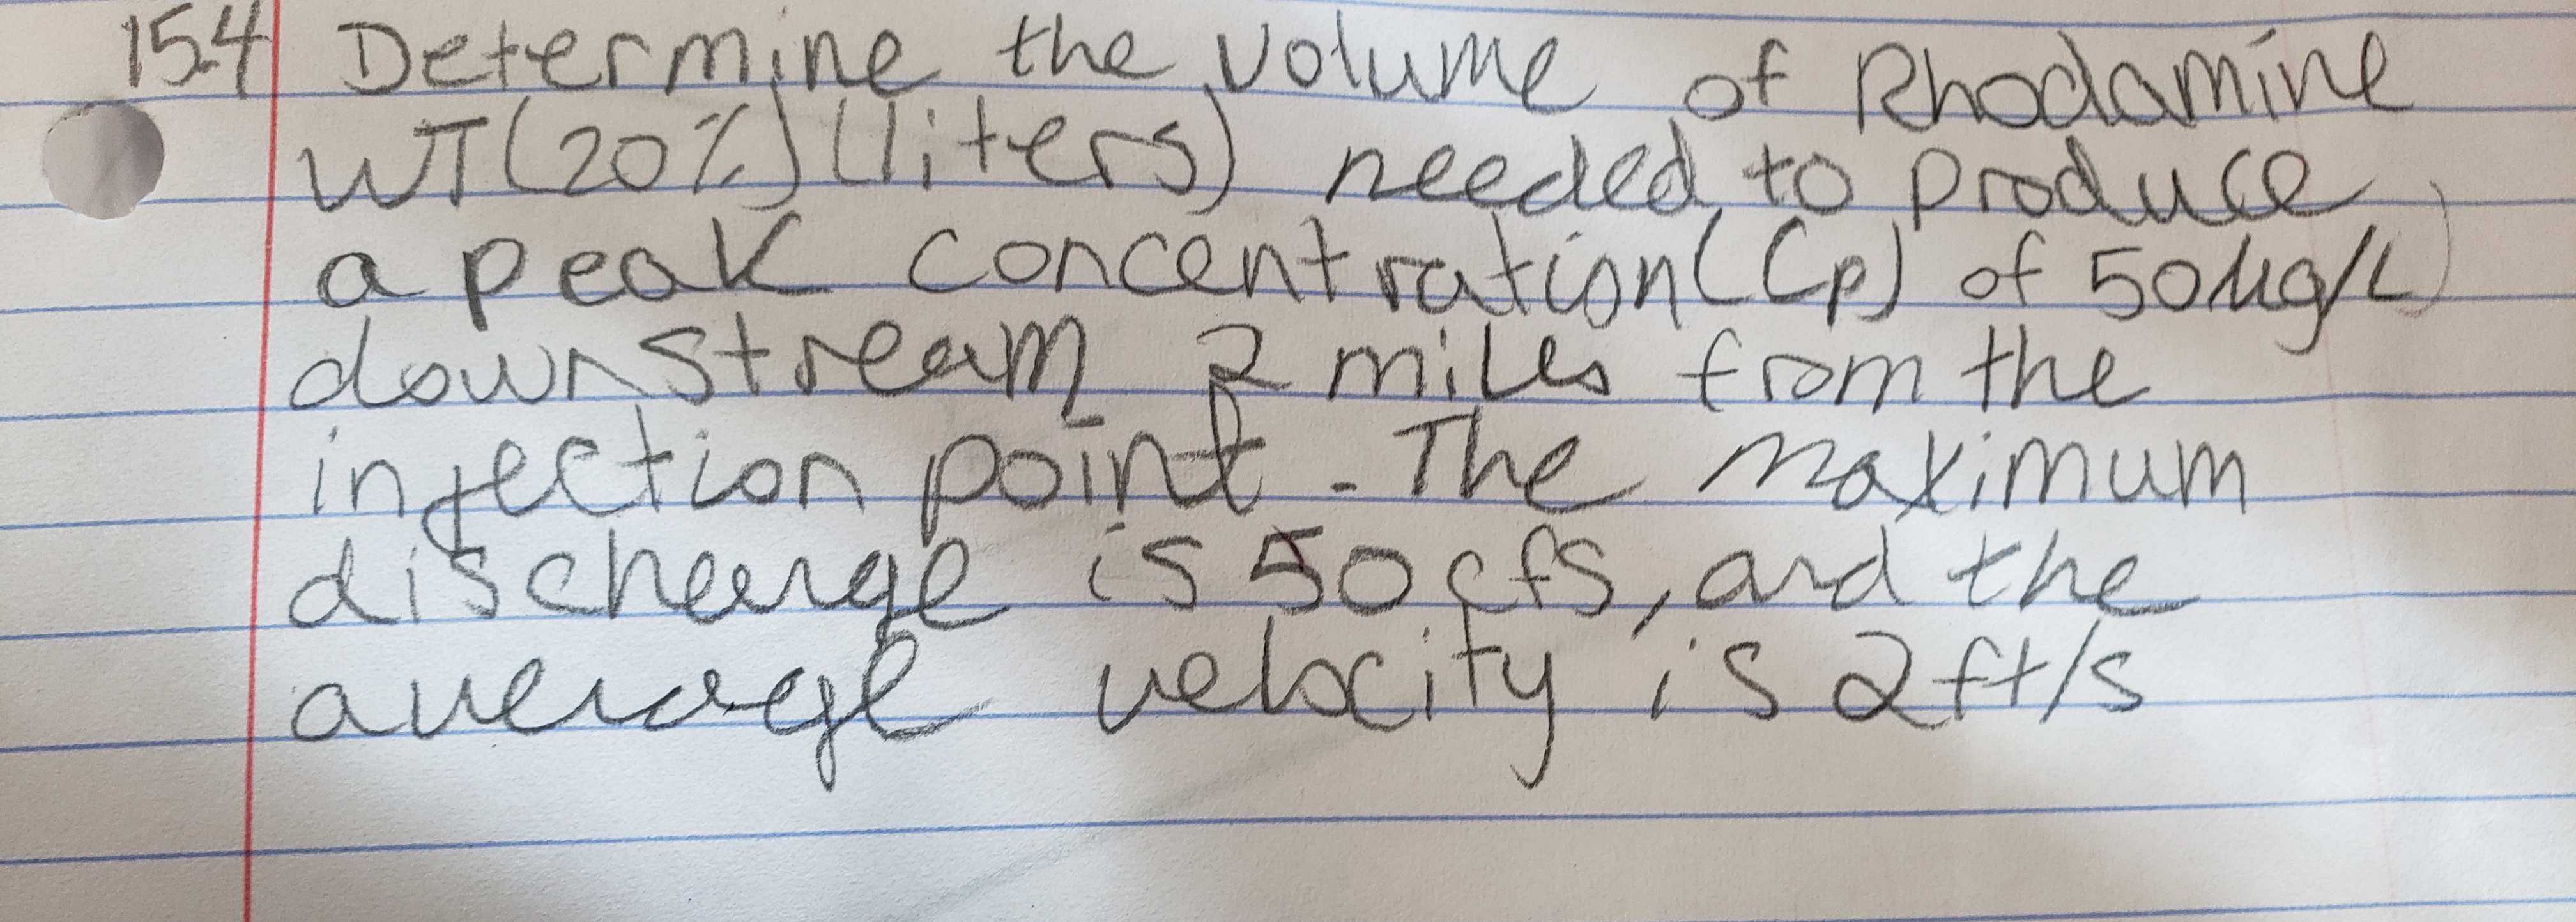 15.4 Determine the volume of Rhodamine
WT (20%) (liters) needed to produce
a peak concentration (Cp) of 50 µg/L
downstream 2 miles from the
injection point. The maximum
discharge is 50 cfs, and the
average velocity is 2 ft/s